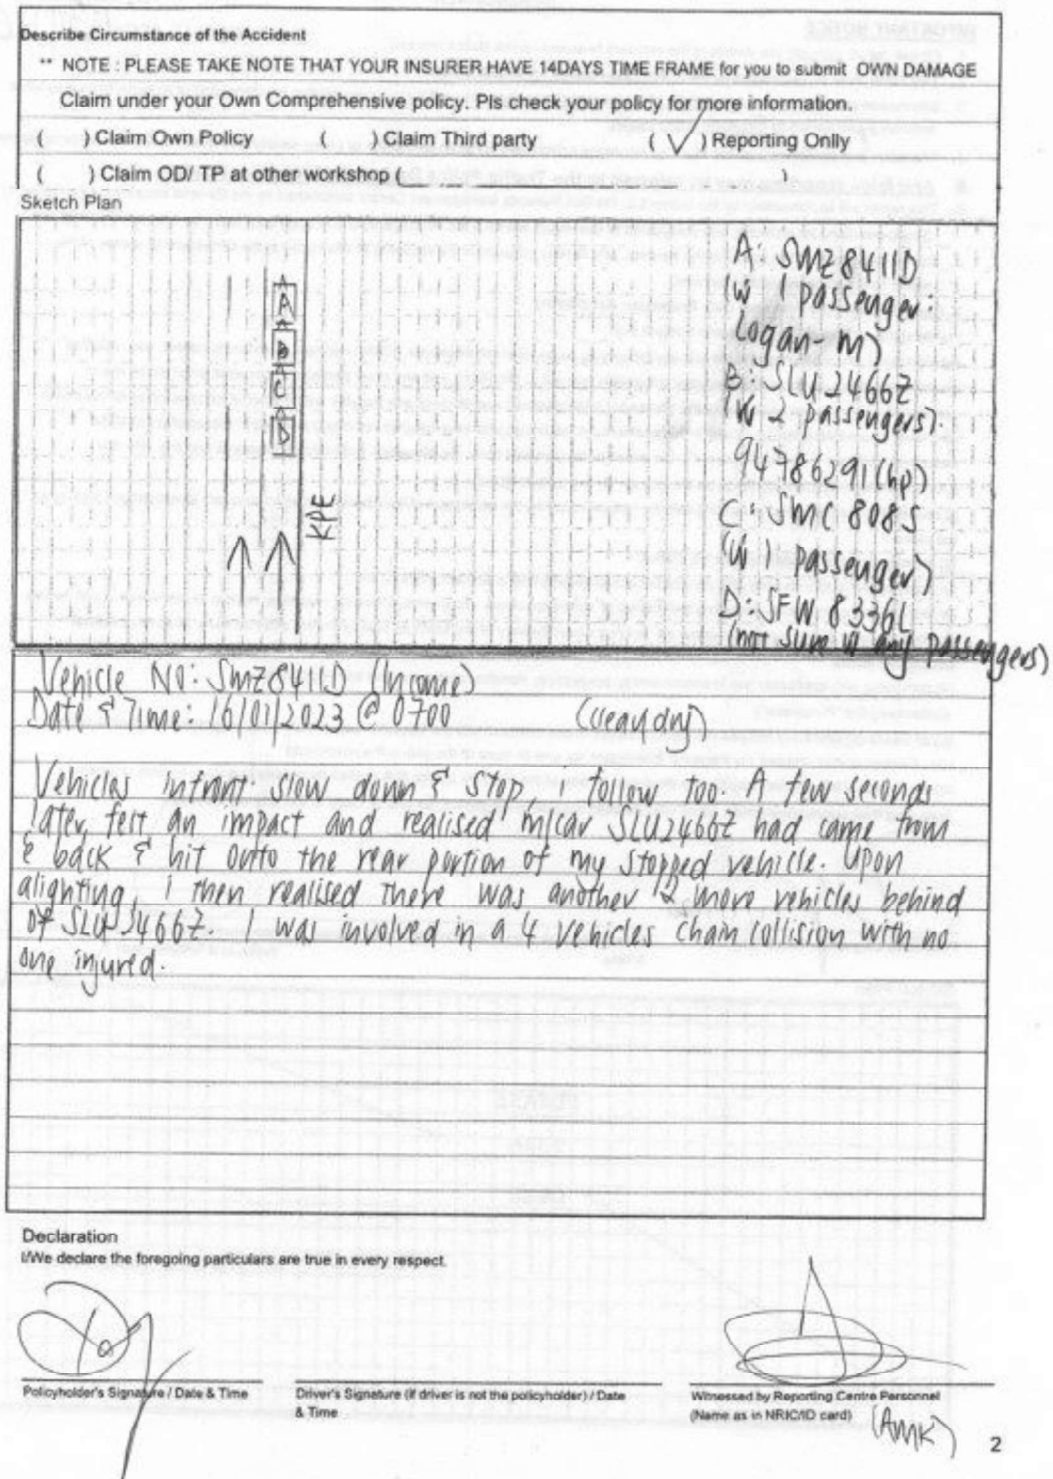 Describe Circumstance of the Accident
** NOTE : PLEASE TAKE NOTE THAT YOUR INSURER HAVE 14DAYS TIME FRAME for you to submit OWN DAMAGE
Claim under your Own Comprehensive policy. Pls check your policy for more information.
( ) Claim Own Policy ( ) Claim Third party ( ✓ ) Reporting Onlly
( ) Claim OD/ TP at other workshop ( )
Sketch Plan
A
B
C
D
KPE
A: SMZ8411D
(w 1 passenger:
Logan-m)
B: SLU2466Z
(w 2 passengers).
94786291(hp)
C: SMC 808S
(w 1 passenger)
D: SFW 8336L
(not sure w any passengers)
Vehicle No: SMZ8411D (Income)
Date & Time: 16/01/2023 @ 0700 (clear/dry)
Vehicles infront slow down & stop, i follow too. A few seconds
later, felt an impact and realised m/car SLU2466Z had came from
e back & hit onto the rear portion of my stopped vehicle. Upon
alighting, i then realised there was another 2 more vehicles behind
of SLU2466Z. I was involved in a 4 vehicles chain collision with no
one injured.
Declaration
I/We declare the foregoing particulars are true in every respect.
Policyholder's Signature / Date & Time
Driver's Signature (if driver is not the policyholder) / Date
& Time
Witnessed by Reporting Centre Personnel
(Name as in NRIC/ID card) (AMK)
2